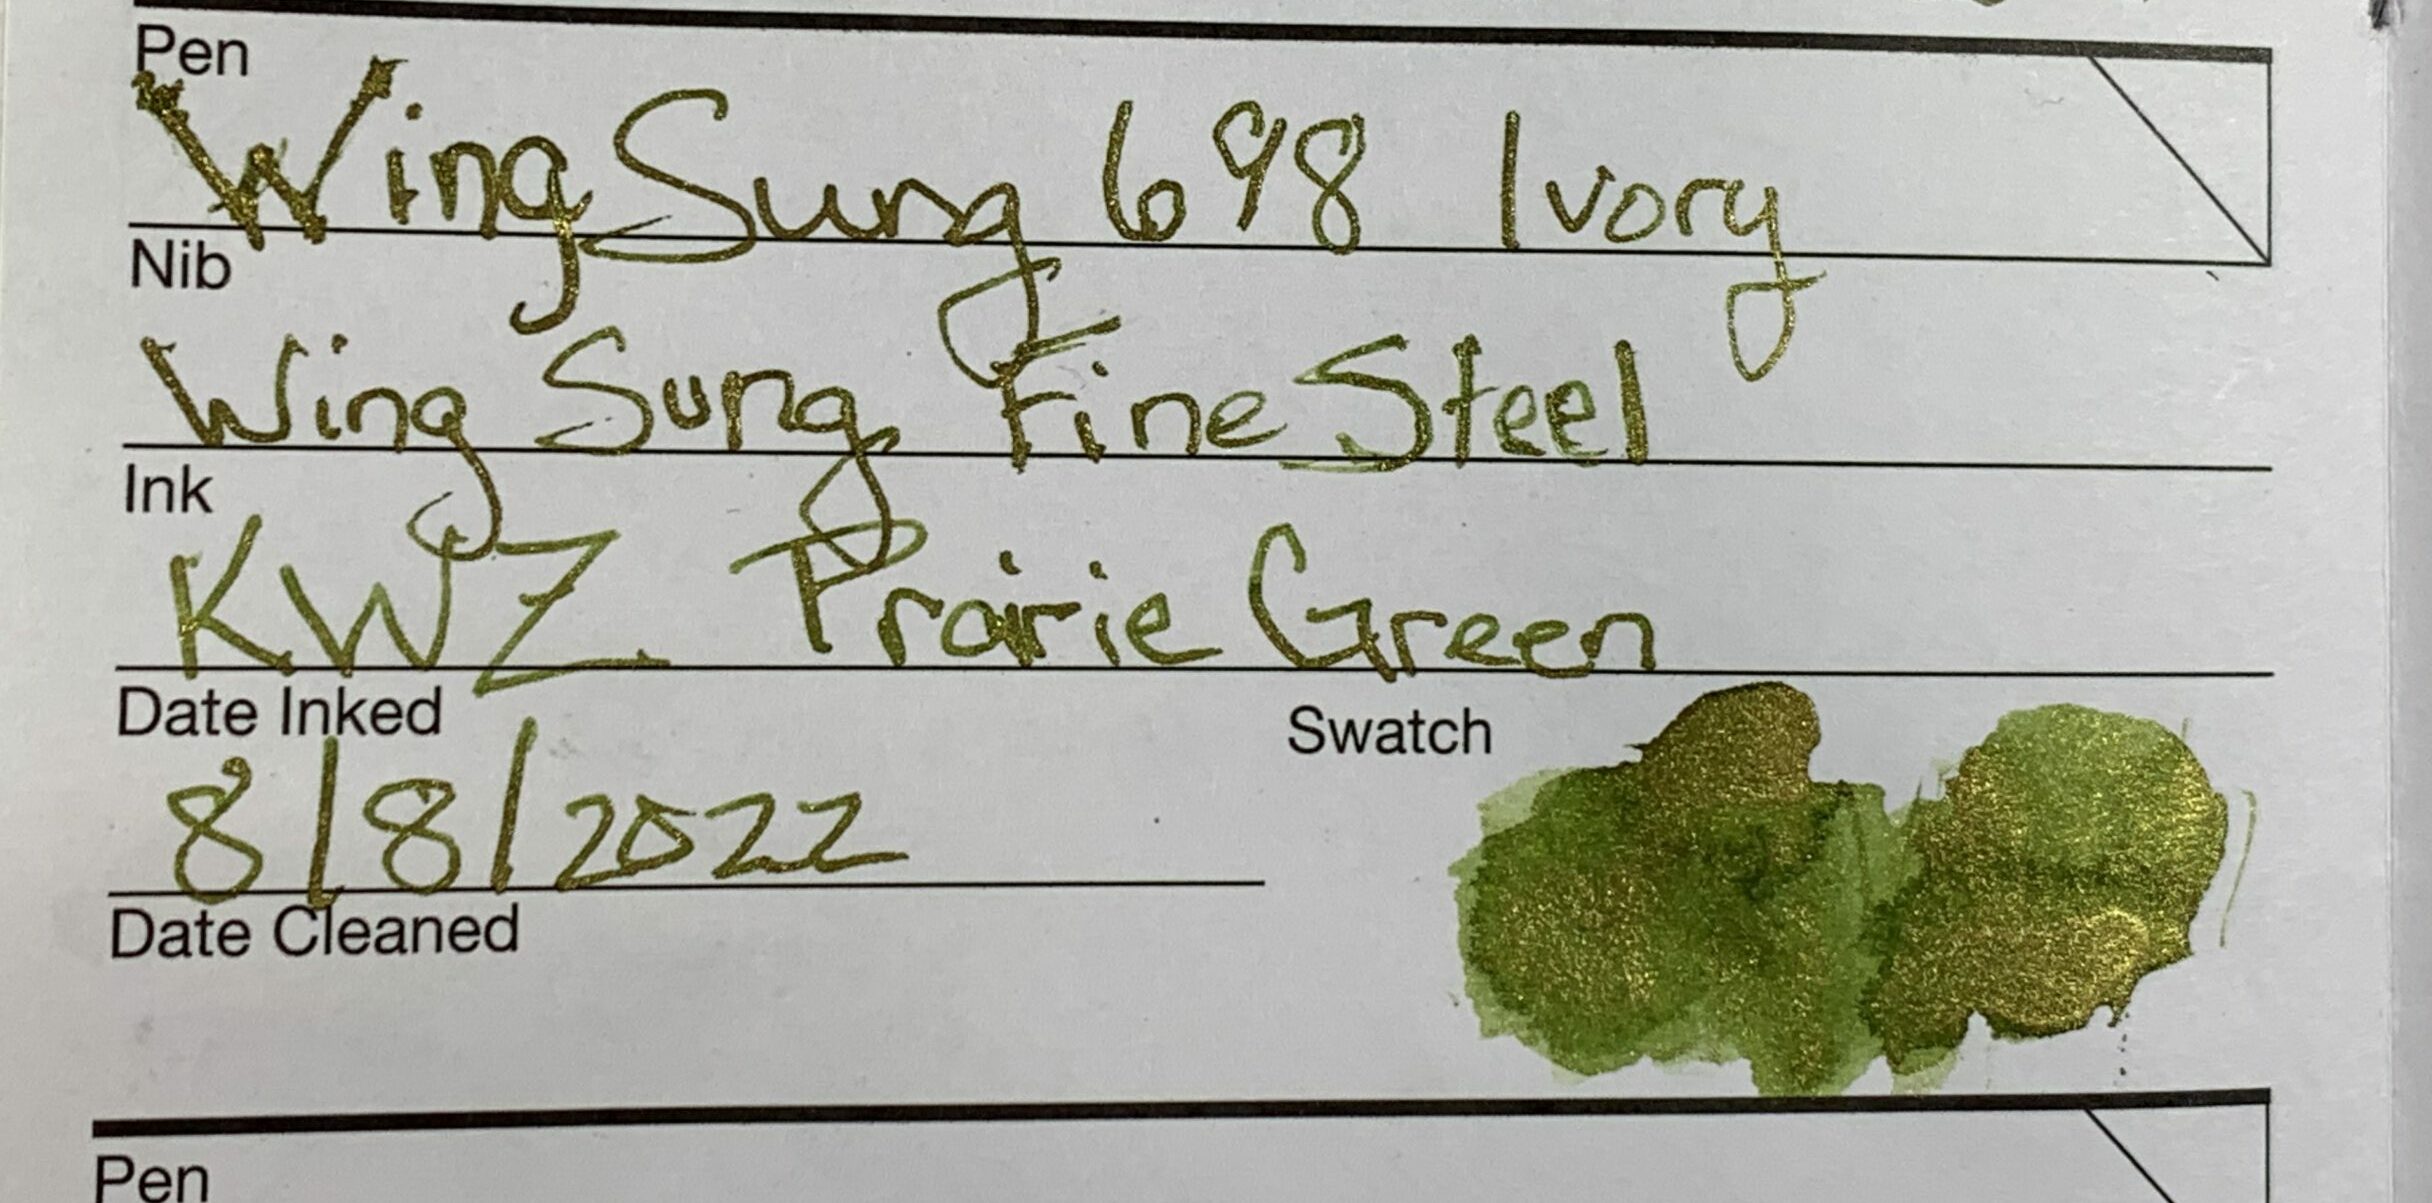 Pen
Wing Sung 698 Ivory
Nib
Wing Sung Fine Steel
Ink
KWZ Prairie Green
Date Inked
8/8/2022
Swatch
Date Cleaned
Pen